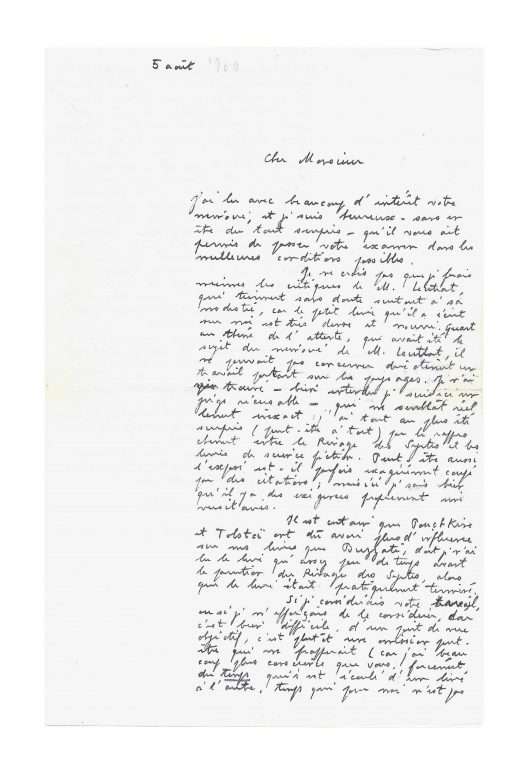 5 août
Cher Monsieur
j'ai lu avec beaucoup d'intérêt votre
mémoire, et je suis heureux - sans en
être du tout surpris - qu'il vous ait
permis de passer votre examen dans les
meilleures conditions possibles.
Je ne crois pas que je ferais
miennes les critiques de M.
qui tiennent sans doute surtout à sa
modestie, car le petit livre qu'il a écrit
sur moi est très dense et nourri. Quant
au thème de l'attente, qui avait été le
sujet du mémoire de M. il
ne pouvait pas concerner directement un
travail portant sur les paysages. Je n'ai
rien trouvé - bien entendu je suis ici un
juge récusable - qui me semblât réel
lement inexact ; j'ai tout au plus été
surpris (peut-être à tort) par le rappro
chement entre le Rivage des Syrtes et les
livres de science fiction. Peut-être aussi
l'exposé est-il parfois exagérément coupé
par des citations ; mais ici je sais bien
qu'il y a des exigences proprement uni
versitaires.
Il est certain que Pouchkine
et Tolstoï ont dû avoir plus d'influence
sur mes livres que Buzzati, dont je n'ai
lu le livre qu'assez peu de temps avant
la parution du Rivage des Syrtes, alors
que le livre était pratiquement terminé.
Si je considérais votre travail,
ou si je m'efforçais de le considérer, car
c'est bien difficile, d'un point de vue
objectif, c'est plutôt une omission peut-
être qui me frapperait (car j'ai beau
coup plus conscience que vous, forcément
du temps qui s'est écoulé d'un livre
à l'autre, temps qui pour moi n'est pas